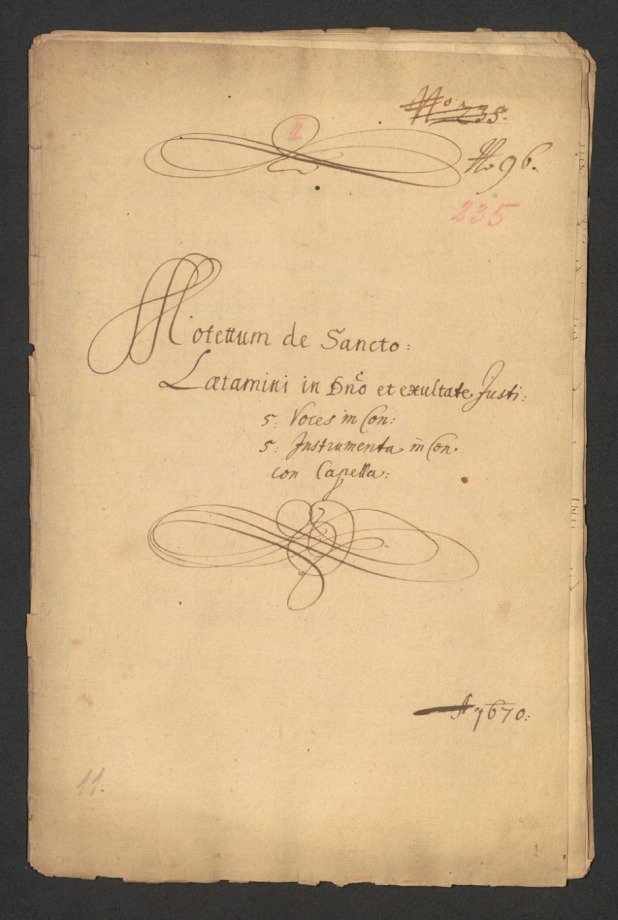 No 235.
II
No 96.
235
Motettum de Sancto:
Lætamini in Dn̄o et exultate Justi:
5: Voces in Con:
5: Instrumenta in Con.
con Capella:
A 1670:
11.